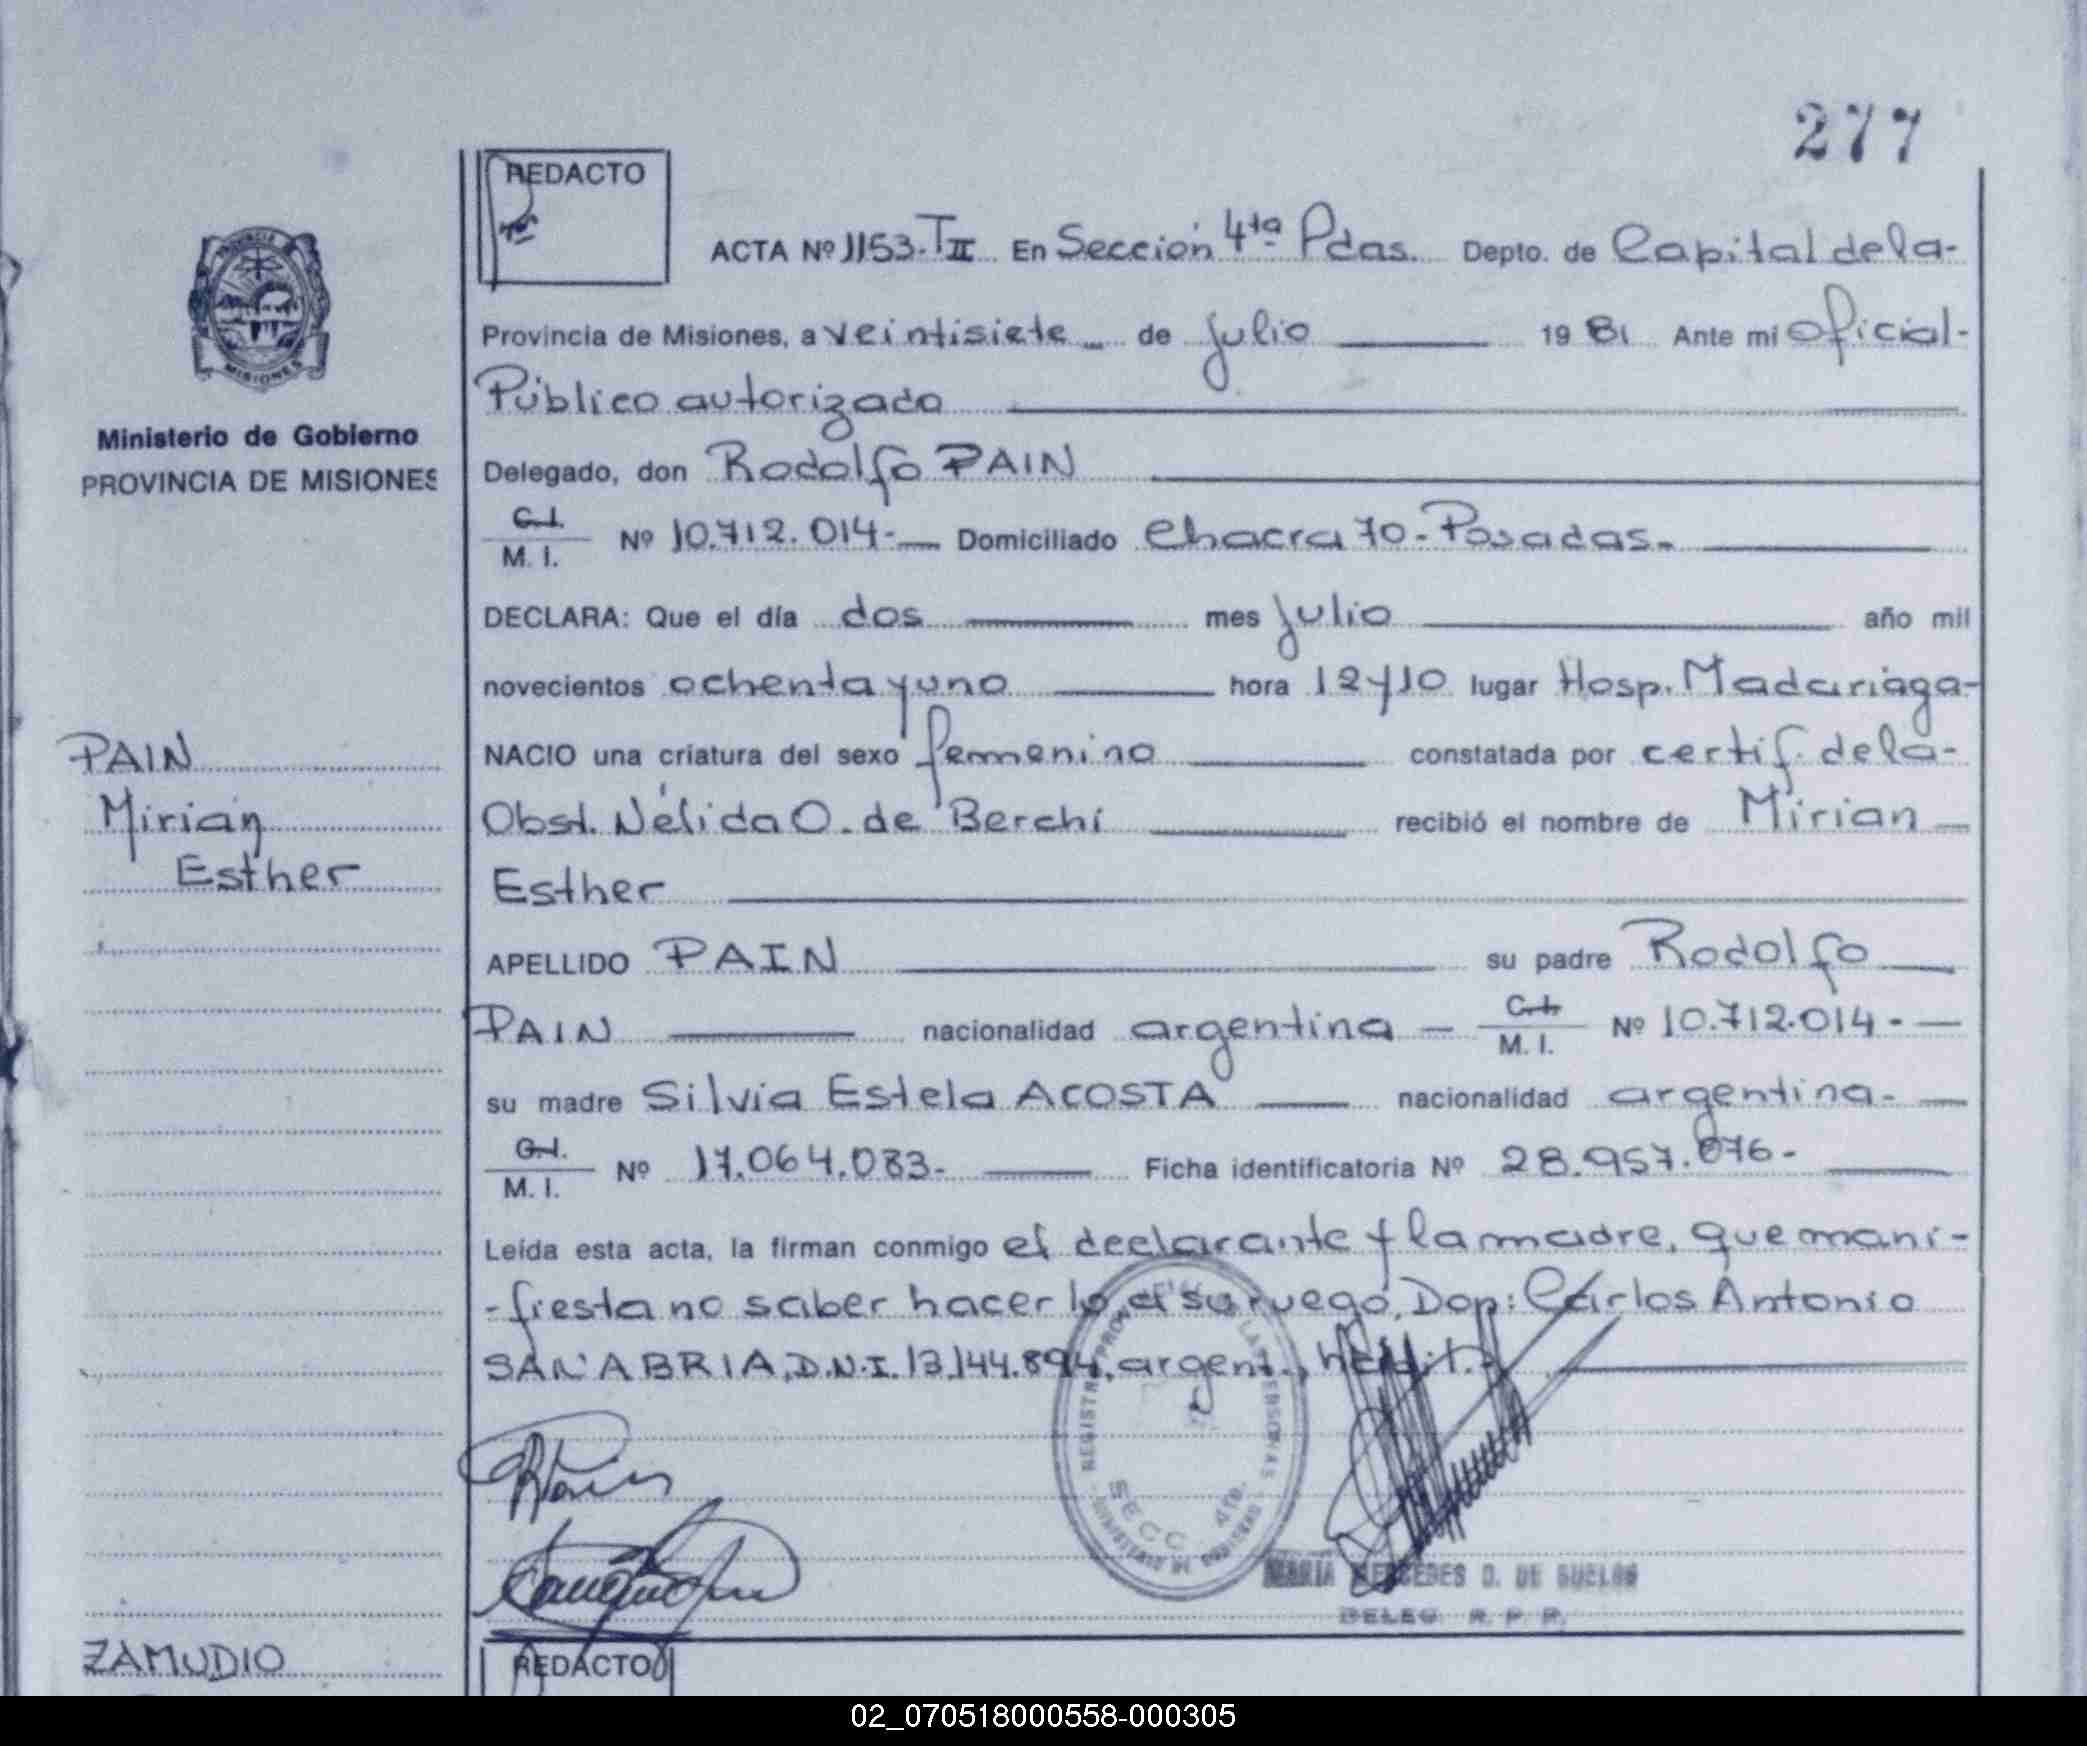 277
REDACTO
ACTA Nº 1153-TII En Sección 4ta Pdas. Depto. de Capital de la-
Provincia de Misiones, a veintisiete de julio 1981 Ante mí Oficial-
Público autorizado
Delegado, don Rodolfo PAIN
C.I. M. I. Nº 10.712.014.- Domiciliado Chacra 70-Posadas.-
DECLARA: Que el día dos mes julio año mil
novecientos ochenta y uno hora 12 y 10 lugar Hosp. Madariaga-
NACIO una criatura del sexo femenino constatada por certif. de la-
Obst. Nélida O. de Berchi recibió el nombre de Mirian
Esther
APELLIDO PAIN su padre Rodolfo
PAIN nacionalidad argentina C.I. M. I. Nº 10.712.014.-
su madre Silvia Estela ACOSTA nacionalidad argentina.-
C.I. M. I. Nº 17.064.083.- Ficha identificatoria Nº 28.957.076.-
Leída esta acta, la firman conmigo el declarante y la madre, que mani-
-fiesta no saber hacerlo, a su ruego, Dop: Carlos Antonio
SANABRIA, D.N.I. 13.144.894, argent.,
SECC 4ta.
MARIA MERCEDES D. DE
DELEG R. P. P.
PROVINCIA
MISIONES
Ministerio de Gobierno
PROVINCIA DE MISIONES
PAIN
Mirian
Esther
ZAMUDIO
REDACTO
02_070518000558-000305